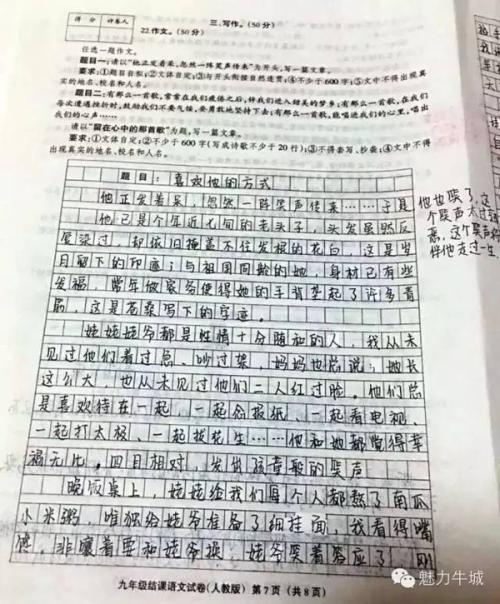 得 分 评卷人
三.写作。(50分)
22.作文。(50分)
任选一题作文。
题目一:请以"他正发着呆,忽然一阵笑声传来"为开头,写一篇文章。
要求:①题目自拟;②文体自定;③与开头衔接自然连贯;④不少于600字;⑤文中不得出现真
实的地名、校名和人名。
题目二:有那么一首歌,常常在我们疲倦之后,伴我们进入甜美的梦乡;有那么一首歌,在我们
每次遭遇挫折时,鼓励我们不要气馁,要勇敢地坚持下去;有那么一首歌,能唱进我们的心里,唱出
我们的心声……
请以"留在心中的那首歌"为题,写一篇文章。
要求:①文体自定;②不少于600字(写成诗歌不少于20行);③不得套写、抄袭;④文中不得
出现真实的地名、校名和人名。
题目:喜欢他的方式
他正发着呆,忽然一阵笑声传来……于是
他已是个年近七旬的老头子,头发虽然反
复染过,却依旧掩盖不住发根的花白,这是岁
月留下的印迹;与祖国同龄的她,身材已有些
发福,常年做家务使得她的手背垄起了许多青
筋,这是沧桑写下的字迹。
姥姥姥爷都是性情十分随和的人,我从未
见过他们着过急、吵过架,妈妈也总说:她长
这么大,也从未见过他们二人红过脸。他们总
是喜欢待在一起,一起念报纸、一起看电视、
一起打太极、一起拔花生……他和她都觉得幸
福无比,四目相对,发出孩童般的笑声
晚饭桌上,姥姥给我们每个人都熬了南瓜
小米粥,唯独给姥爷准备了细挂面,我看得嘴
馋,非嚷着要和姥爷换,姥爷笑着答应了,刚
他也笑了,这
个笑声太过
这个笑声将
伴他走过一生
九年级结课语文试卷(人教版) 第7页(共8页)
魅力牛城